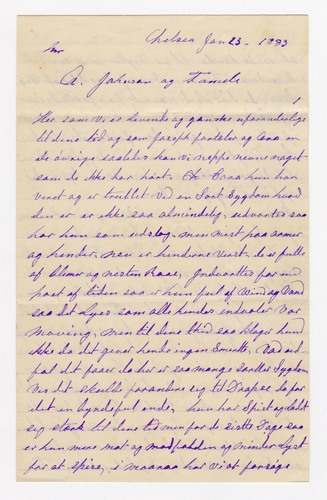 Chelsea Jan 23 - 1883
Mr
A. Johnson og Famele
Her som vi er levende og ganske uforanderlige
til dene tid og som Joseph fortaler og Cona om
de øvrige saa kan vi neppe nevne noget
som de ikke har hørt. Cona hun har
veret og er trublet ved en Sort Sygdom hvad
den er er ikke saa almindelig, udvortes saa
har hun som udslag, men mest paa armer
og hender, men er henderne verst. de er fulle
af Blemer og nesten Raae, Indvortes for en
part af tiden saa er hun ful af Wind og Vand
saa det lyder som alle hendes indvoler var
moving, min til dene thid saa klager hun
ikke da det giver hende ingen Smerte, Vad ud
fal det faaer da her er saa mange
vis det skulde forandre sig til Drapse da far
det en byndefuld ende, hun har Spist og holdt
sig sterk til dene tid men for de sidste Dage saa
er hun mere mat og og minder Lyst
for at spise, i maanaa har vi at forsøge